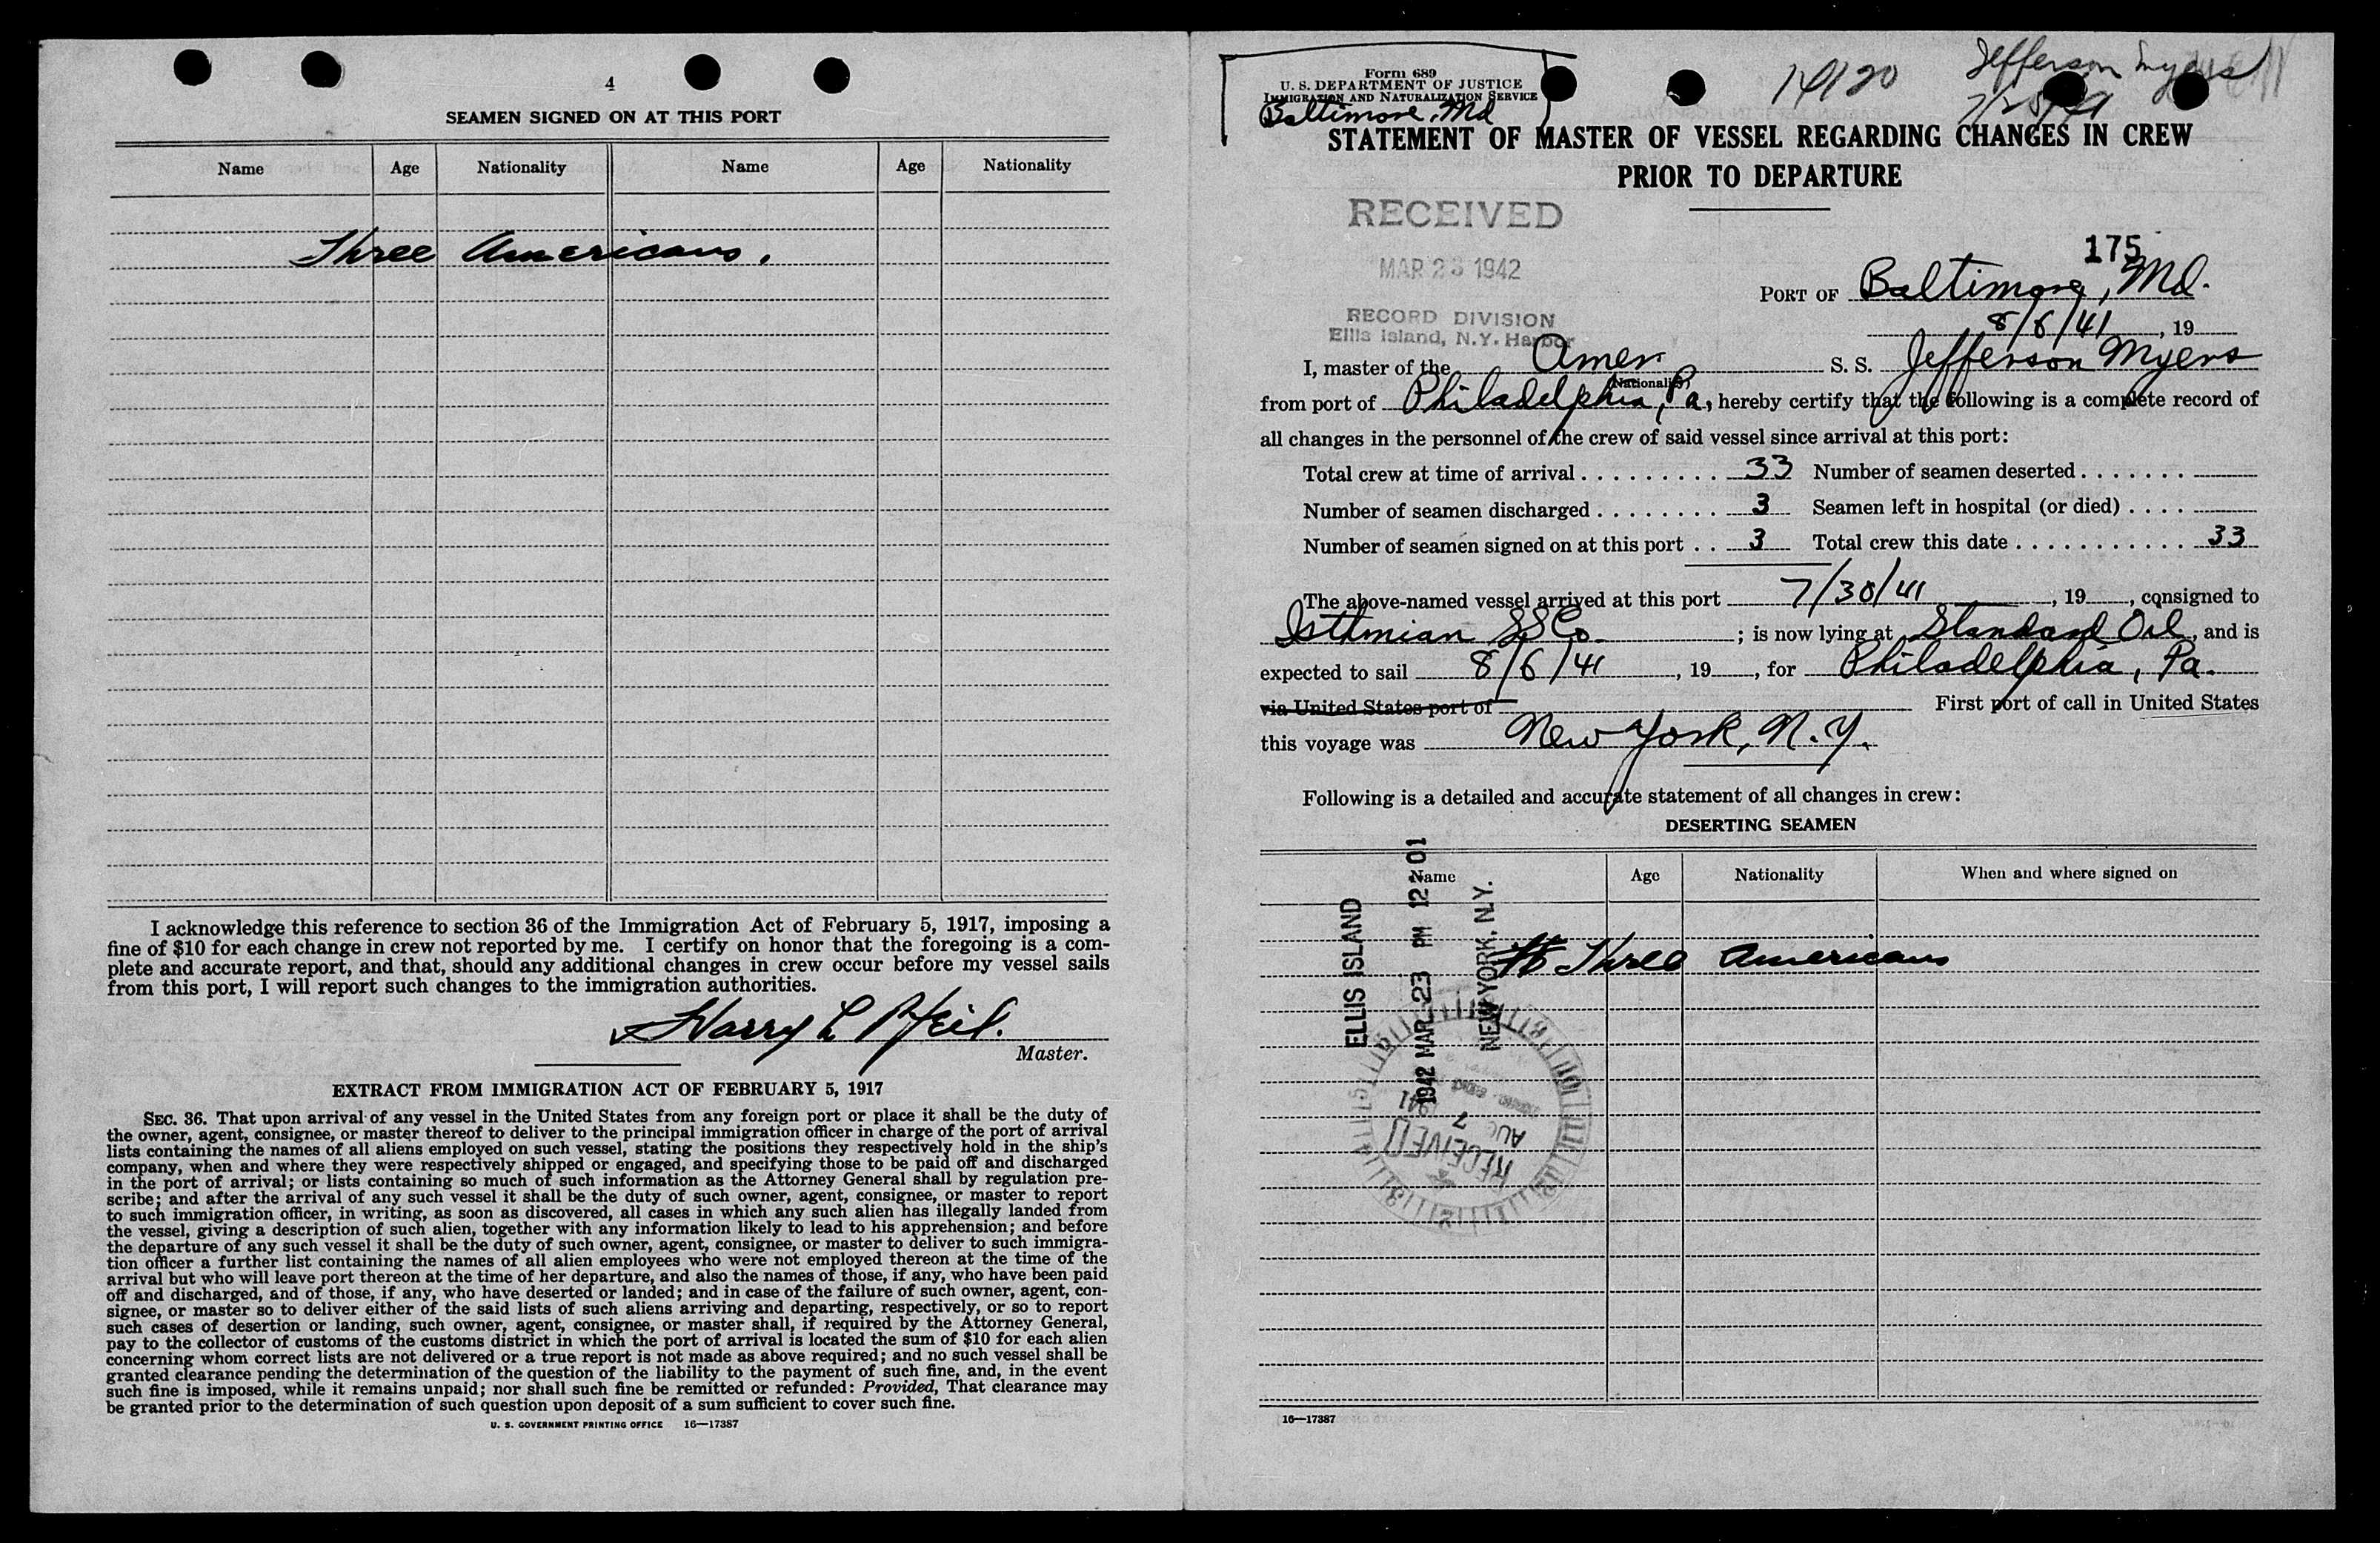 4
SEAMEN SIGNED ON AT THIS PORT
Name Age Nationality Name Age Nationality
Three Americans.
I acknowledge this reference to section 36 of the Immigration Act of February 5, 1917, imposing a
fine of $10 for each change in crew not reported by me. I certify on honor that the foregoing is a com-
plete and accurate report, and that, should any additional changes in crew occur before my vessel sails
from this port, I will report such changes to the immigration authorities.
Harry L
Master.
EXTRACT FROM IMMIGRATION ACT OF FEBRUARY 5, 1917
SEC. 36. That upon arrival of any vessel in the United States from any foreign port or place it shall be the duty of
the owner, agent, consignee, or master thereof to deliver to the principal immigration officer in charge of the port of arrival
lists containing the names of all aliens employed on such vessel, stating the positions they respectively hold in the ship's
company, when and where they were respectively shipped or engaged, and specifying those to be paid off and discharged
in the port of arrival; or lists containing so much of such information as the Attorney General shall by regulation pre-
scribe; and after the arrival of any such vessel it shall be the duty of such owner, agent, consignee, or master to report
to such immigration officer, in writing, as soon as discovered, all cases in which any such alien has illegally landed from
the vessel, giving a description of such alien, together with any information likely to lead to his apprehension; and before
the departure of any such vessel it shall be the duty of such owner, agent, consignee, or master to deliver to such immigra-
tion officer a further list containing the names of all alien employees who were not employed thereon at the time of the
arrival but who will leave port thereon at the time of her departure, and also the names of those, if any, who have been paid
off and discharged, and of those, if any, who have deserted or landed; and in case of the failure of such owner, agent, con-
signee, or master so to deliver either of the said lists of such aliens arriving and departing, respectively, or so to report
such cases of desertion or landing, such owner, agent, consignee, or master shall, if required by the Attorney General,
pay to the collector of customs of the customs district in which the port of arrival is located the sum of $10 for each alien
concerning whom correct lists are not delivered or a true report is not made as above required; and no such vessel shall be
granted clearance pending the determination of the question of the liability to the payment of such fine, and, in the event
such fine is imposed, while it remains unpaid; nor shall such fine be remitted or refunded: Provided, That clearance may
be granted prior to the determination of such question upon deposit of a sum sufficient to cover such fine.
U. S. GOVERNMENT PRINTING OFFICE 16—17387
Form 689
U. S. DEPARTMENT OF JUSTICE
IMMIGRATION AND NATURALIZATION SERVICE
Baltimore, Md
14120
Jefferson Myers
STATEMENT OF MASTER OF VESSEL REGARDING CHANGES IN CREW
PRIOR TO DEPARTURE
RECEIVED
MAR 23 1942
RECORD DIVISION
Ellis Island, N.Y. Harbor
175
PORT OF Baltimore, Md.
8/6/41, 19
I, master of the Amer S. S. Jefferson Myers
(Nationality)
from port of Philadelphia, Pa, hereby certify that the following is a complete record of
all changes in the personnel of the crew of said vessel since arrival at this port:
Total crew at time of arrival 33 Number of seamen deserted
Number of seamen discharged 3 Seamen left in hospital (or died)
Number of seamen signed on at this port 3 Total crew this date 33
The above-named vessel arrived at this port 7/30/41, 19, consigned to
Isthmian SS Co.; is now lying at Standard Oil, and is
expected to sail 8/6/41, 19, for Philadelphia, Pa.
via United States port of First port of call in United States
this voyage was New York, N.Y.
Following is a detailed and accurate statement of all changes in crew:
DESERTING SEAMEN
Name Age Nationality When and where signed on
Three Americans
ELLIS ISLAND
1942 MAR 23 PM 12 01
NEW YORK, N.Y.
RECEIVED
AUG 7 1941
16—17387